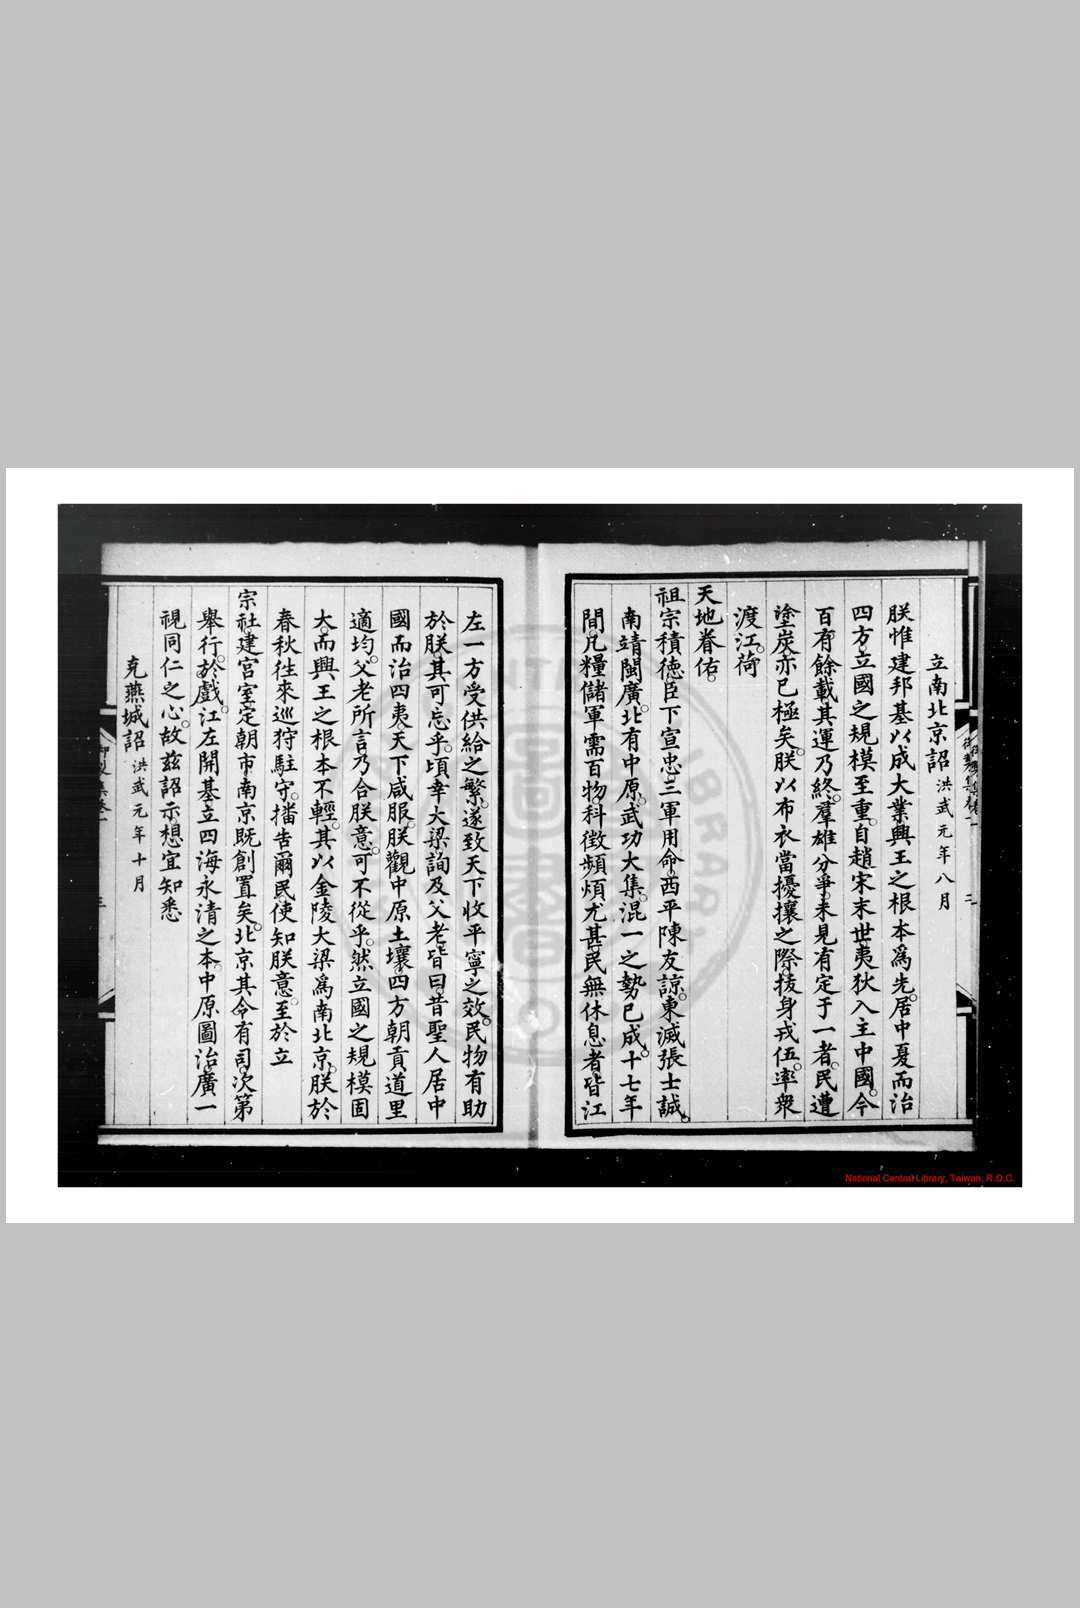 立南北京詔 洪武元年八月
朕惟建邦基以成大業興王之根本爲先居中夏而治
四方立國之規模至重自趙宋末世夷狄入主中國今
百有餘載其運乃終羣雄分爭未見有定于一者民遭
塗炭亦已極矣朕以布衣當擾攘之際拔身戎伍率衆
渡江荷
天地眷佑
祖宗積德臣下宣忠三軍用命西平陳友諒東滅張士誠
南靖閩廣北有中原武功大集混一之勢已成十七年
間凡糧儲軍需百物科徴頻煩尤甚民無休息者皆江
左一方受供給之繁遂致天下收平寧之效民物有助
於朕其可忘乎頃幸大梁詢及父老皆曰昔聖人居中
國而治四夷天下咸服朕觀中原土壤四方朝貢道里
適均父老所言乃合朕意可不從乎然立國之規模固
大而興王之根本不輕其以金陵大梁爲南北京朕於
春秋徃來巡狩駐守播告爾民使知朕意至於立
宗社建宮室定朝市南京既創置矣北京其令有司次第
舉行於戲江左開基立四海永清之本中原圖治廣一
視同仁之心故茲詔示想宜知悉
克燕城詔 洪武元年十月
三
National Central Library, Taiwan, R.O.C.